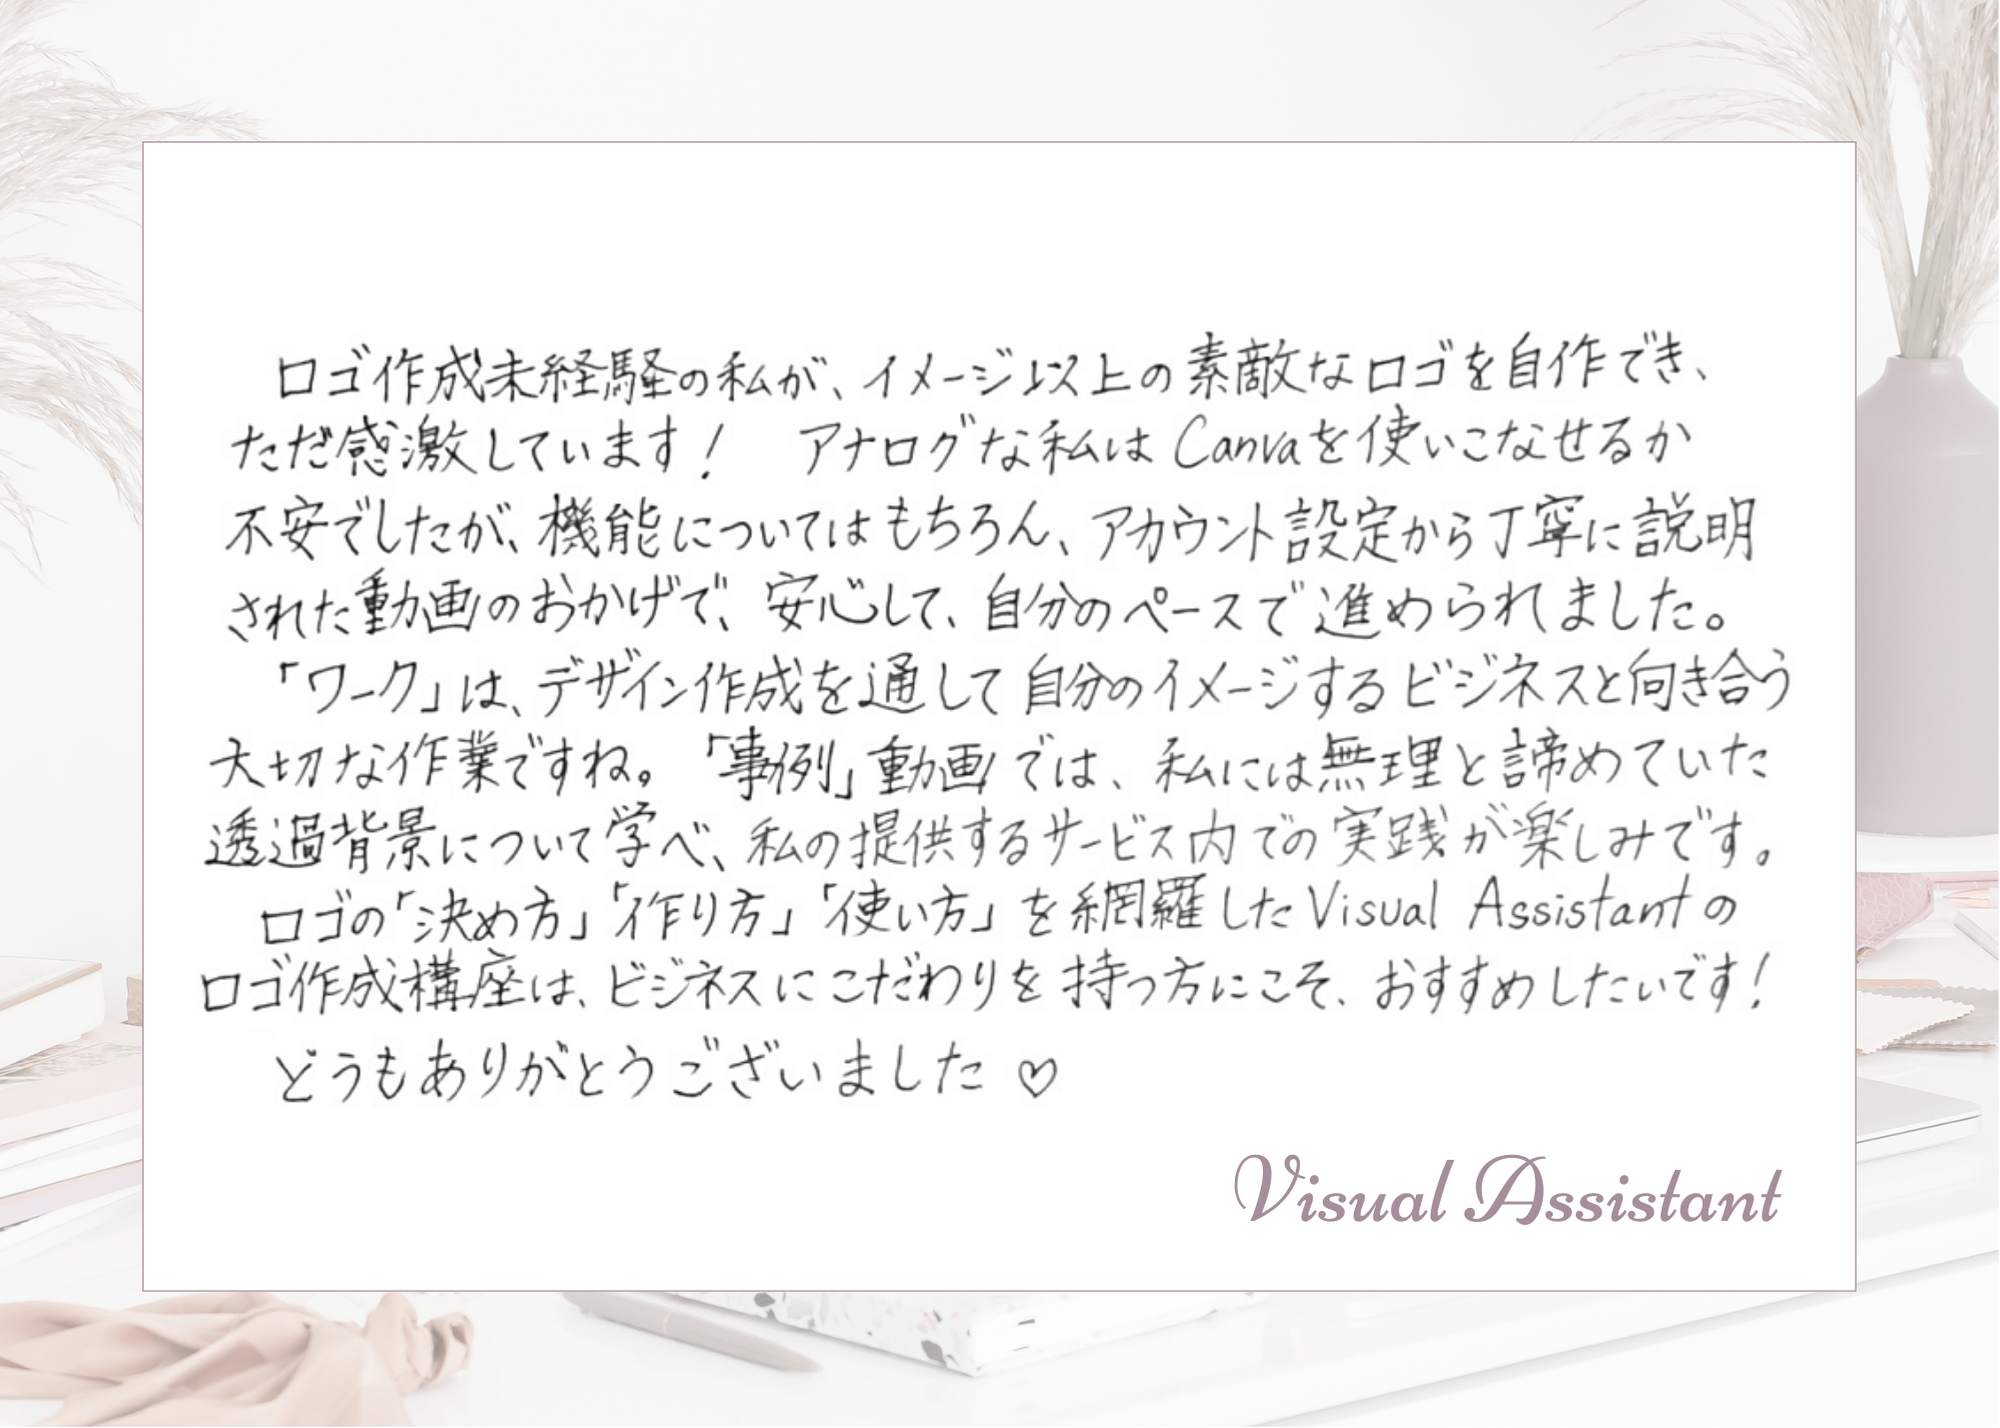 ロゴ作成未経験の私が、イメージ以上の素敵なロゴを自作でき、
ただ感激しています！　アナログな私はCanvaを使いこなせるか
不安でしたが、機能についてはもちろん、アカウント設定から丁寧に説明
された動画のおかげで、安心して、自分のペースで進められました。
「ワーク」は、デザイン作成を通して自分のイメージするビジネスと向き合う
大切な作業ですね。「事例」動画では、私には無理と諦めていた
透過背景について学べ、私の提供するサービス内での実践が楽しみです。
ロゴの「決め方」「作り方」「使い方」を網羅したVisual Assistantの
ロゴ作成講座は、ビジネスにこだわりを持つ方にこそ、おすすめしたいです！
どうもありがとうございました♡
Visual Assistant